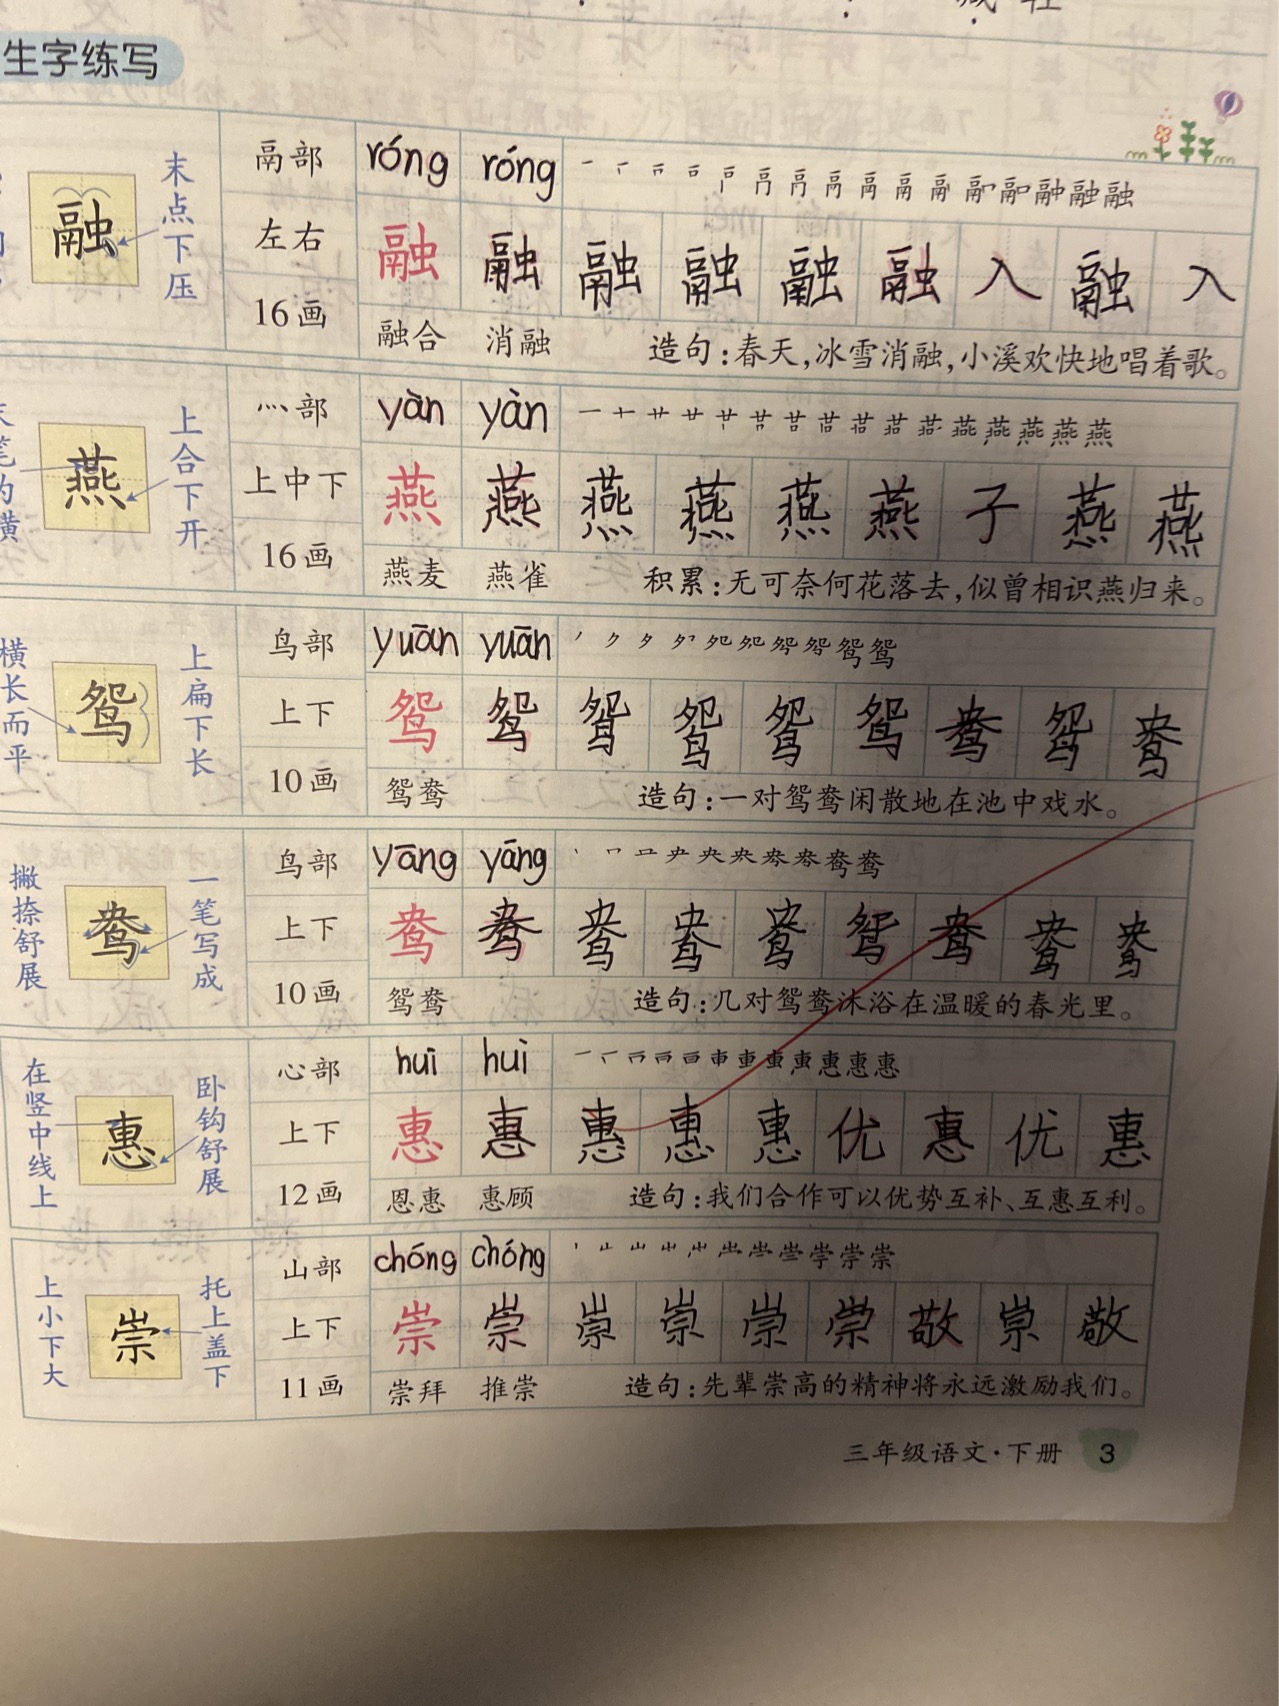 减 轻
生字练写
融
末点下压
鬲部
左右
16画
róng róng
一 融
融 融 融 融 融 融 入 融 入
融合 消融 造句：春天，冰雪消融，小溪欢快地唱着歌。
燕
上合下开
灬部
上中下
16画
yàn yàn
一 十 燕
燕 燕 燕 燕 燕 燕 子 燕 燕
燕麦 燕雀 积累：无可奈何花落去，似曾相识燕归来。
横长而平
鸳
上扁下长
鸟部
上下
10画
yuān yuān
鸳鸳
鸳 鸳 鸳 鸳 鸳 鸳 鸯 鸳 鸯
鸳鸯 造句：一对鸳鸯闲散地在池中戏水。
撇捺舒展
鸯
一笔写成
鸟部
上下
10画
yāng yāng
央 鸯鸯
鸯 鸯 鸯 鸯 鸯 鸳 鸯 鸯 鸯
鸳鸯 造句：几对鸳鸯沐浴在温暖的春光里。
在竖中线上
惠
卧钩舒展
心部
上下
12画
huì huì
一 惠惠惠
惠 惠 惠 惠 惠 优 惠 优 惠
恩惠 惠顾 造句：我们合作可以优势互补、互惠互利。
上小下大
崇
托上盖下
山部
上下
11画
chóng chóng
山 崇崇
崇 崇 崇 崇 崇 崇 敬 崇 敬
崇拜 推崇 造句：先辈崇高的精神将永远激励我们。
三年级语文·下册 3